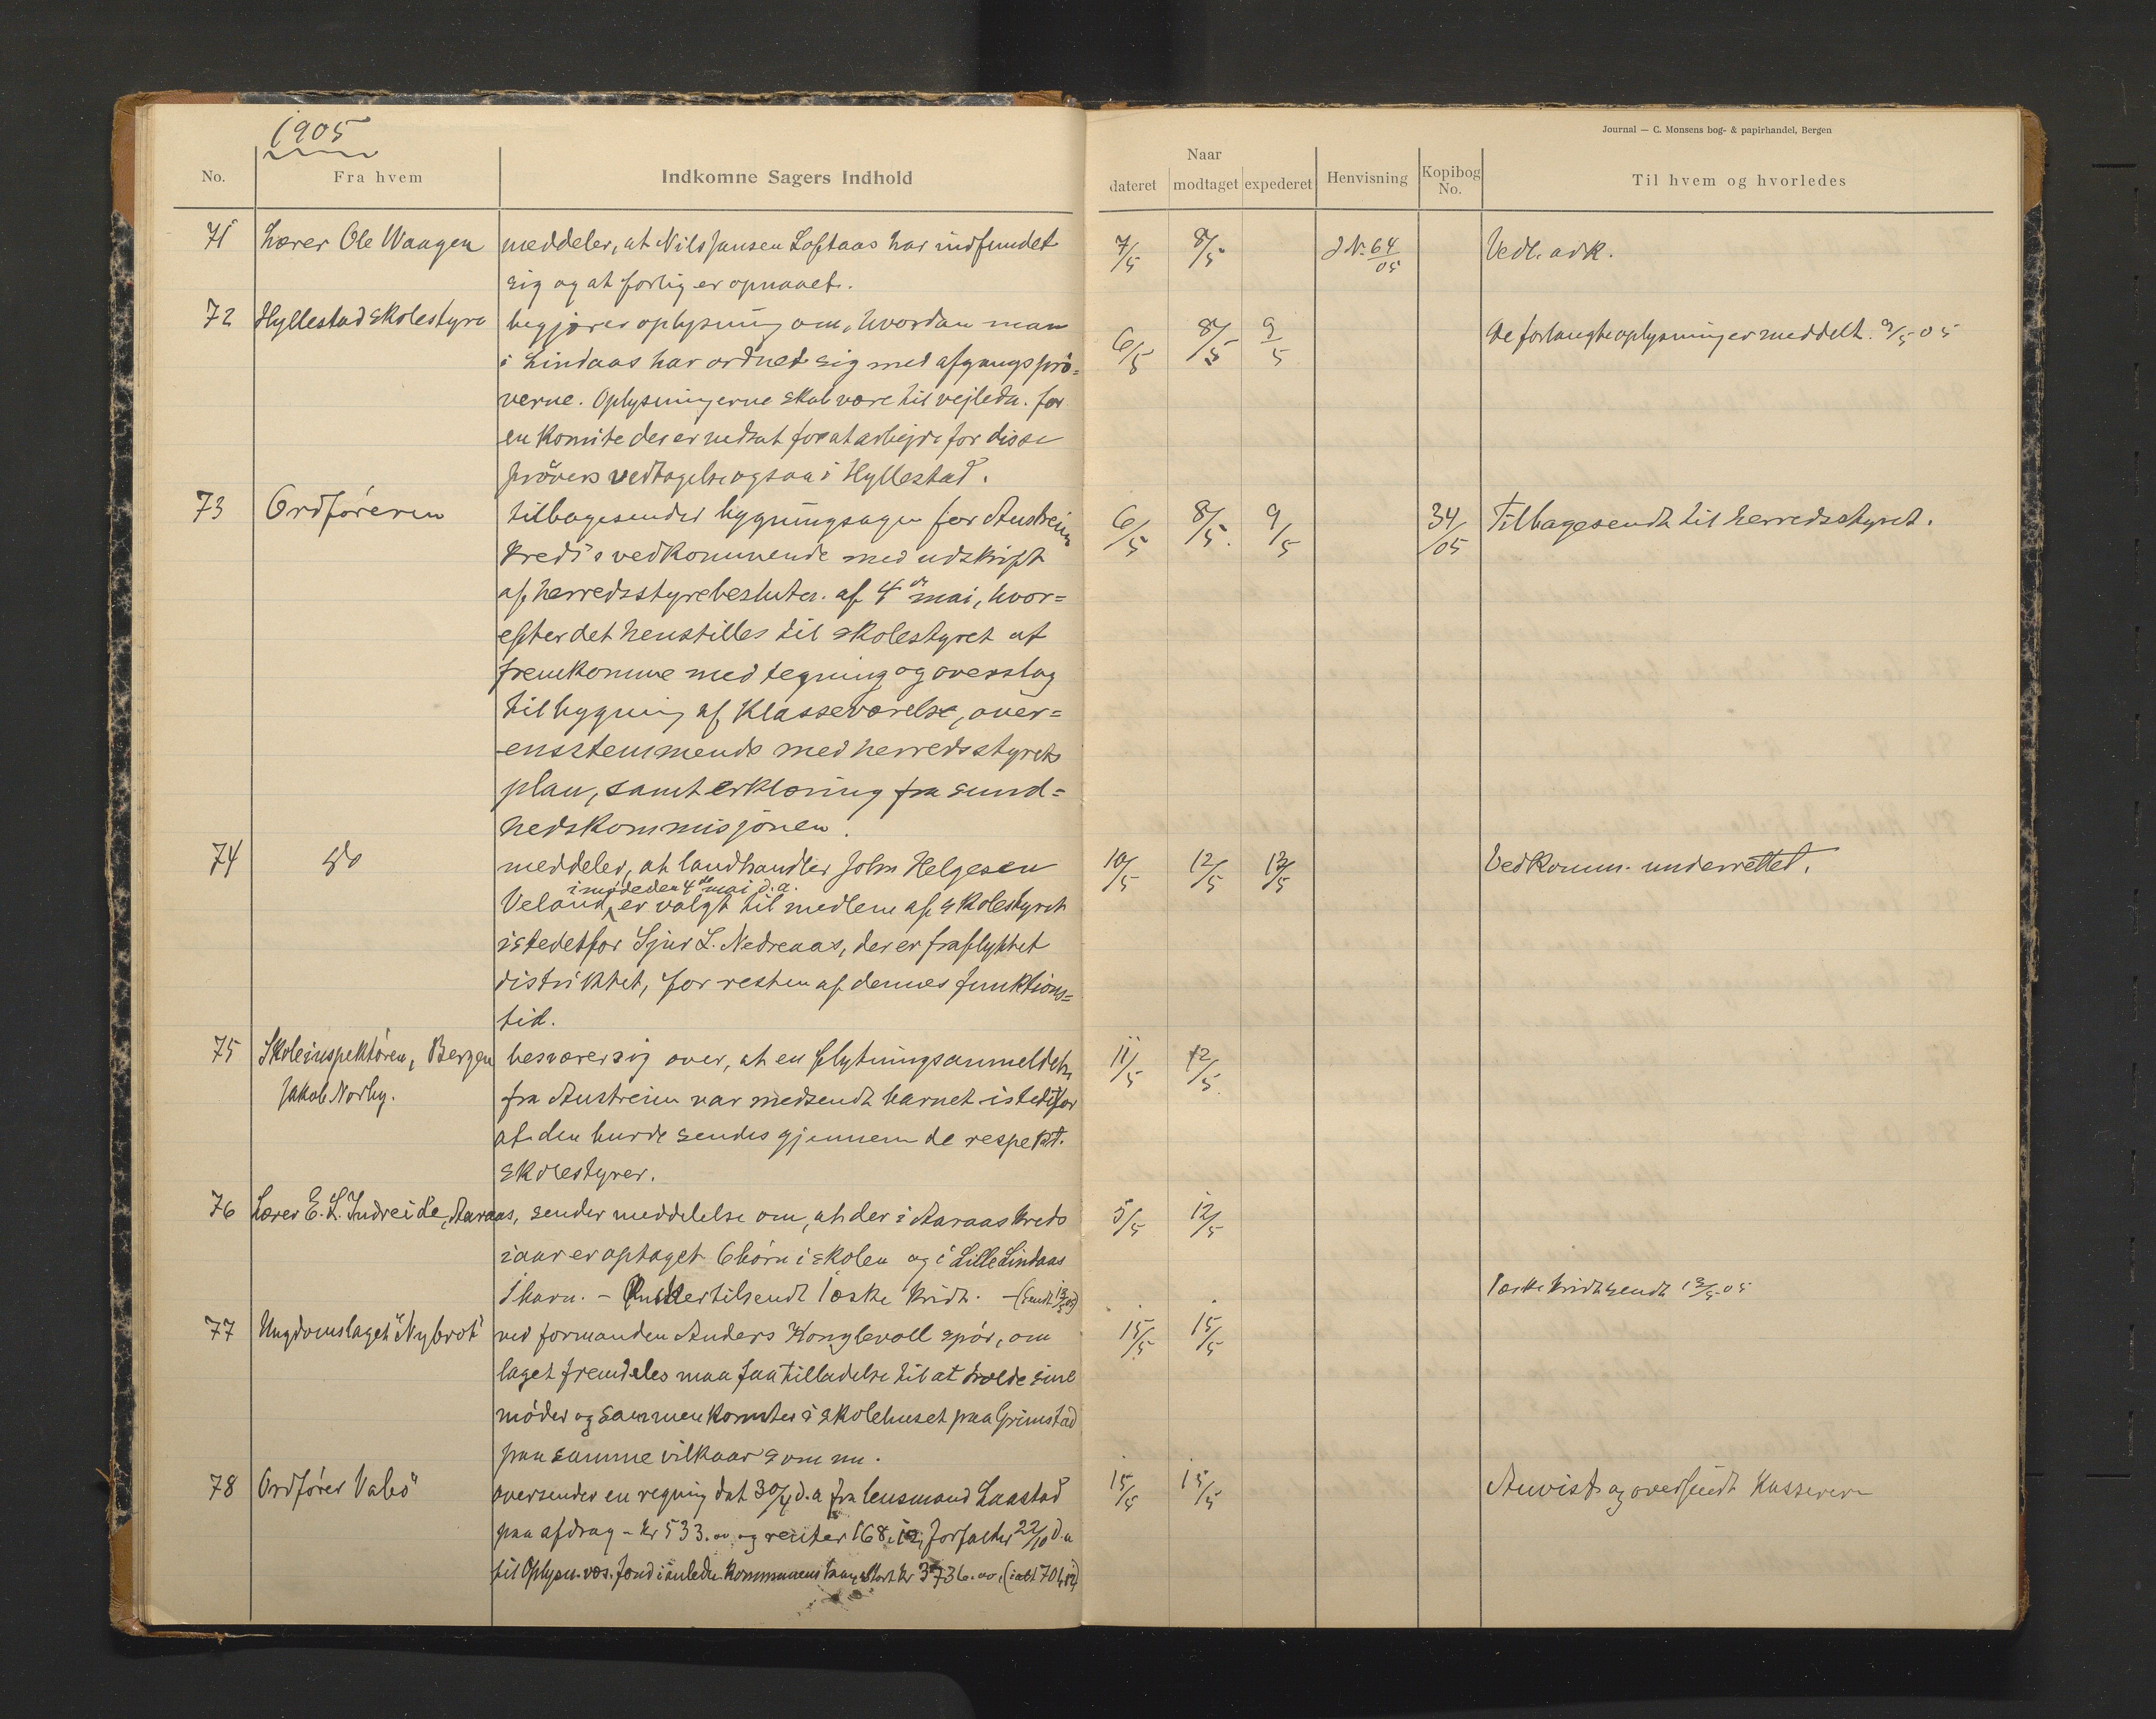 1905
Journal — C. Monsens bog- & papirhandel, Bergen
No.
Fra hvem
Indkomne Sagers Indhold
Naar
dateret
modtaget
expederet
Henvisning
Kopibog No.
Til hvem og hvorledes
71 Lærer Ole Waagen meddeler, at Nils Jansen Loftaas har indfundet 7/5 8/5 J.N. 64/05 Vedl. ark.
sig og at forlig er opnaaet.
72 Hyllestad skolestyre begjærer oplysning om, hvordan man 6/5 8/5 9/5 De forlangte oplysninger meddelt. 9/5 05
i Lindaas har ordnet sig med afgangsprö=
verne. Oplysningerne skal være til vejledn. for
en komite der er nedsat for at arbejde for disse
prövers vedtagelse ogsaa i Hyllestad.
73 Ordföreren tilbagesender bygningsagen for Austreim 6/5 8/5. 9/5 34/05 Tilbagesendt til herredsstyret.
kreds vedkommende med udskrift
af herredsstyrebeslutn. af 4de mai, hvor=
efter det henstilles til skolestyret at
fremkomme med tegning og overslag
til bygning af klasseværelse, over=
ensstemmende med herredsstyrets
plan, samt erklæring fra sund=
hedskommisjonen.
74 do meddeler, at landhandler John Helgesen 10/5 12/5 12/5 Vedkomm. underrettet.
i møde den 4de mai d.a.
Veland, er valgt til medlem af skolestyret
istedetfor Sjur L. Nedreaas, der er fraflyttet
distriktet, for resten af dennes funktions=
tid.
75 Skoleinspektören, Bergen besværer sig over, at en flytningsanmeldelse 11/5 12/5
Jakob Norby. fra Austreim var medsendt barnet istedetfor
at den burde sendes gjennem de respekt.
skolestyrer.
76 Lærer E. L. Indreide, Aaraas, sender meddelelse om, at der i Aaraas kreds 5/5 12/5
iaar er optaget 6 börn i skolen og i Lille Lindaas
1 barn. – Ønsker tilsendt 1 æske kridt. – (Sendt 13/5 05) 1 æske kridt sendt 13/5 05
77 Ungdomslaget "Nybrot" ved formanden Anders Konglevoll spör, om 15/5 15/5
laget fremdeles maa faa tilladelse til at holde sine
möder og sammenkomster i skolehuset paa Grimstad
paa samme vilkaar som nu.
78 Ordfører Valö oversender en regning dat 30/4 d.a fra lensmand Laastad 15/5 15/5 Anvist og oversendt kasseren
paa afdrag – kr 533.00 og renter 168.12, forfalder 22/10 d.a
til Oplysn.væs. fond i anledn. kommunens laan, stort kr 3736.00, (ialt 701,12)